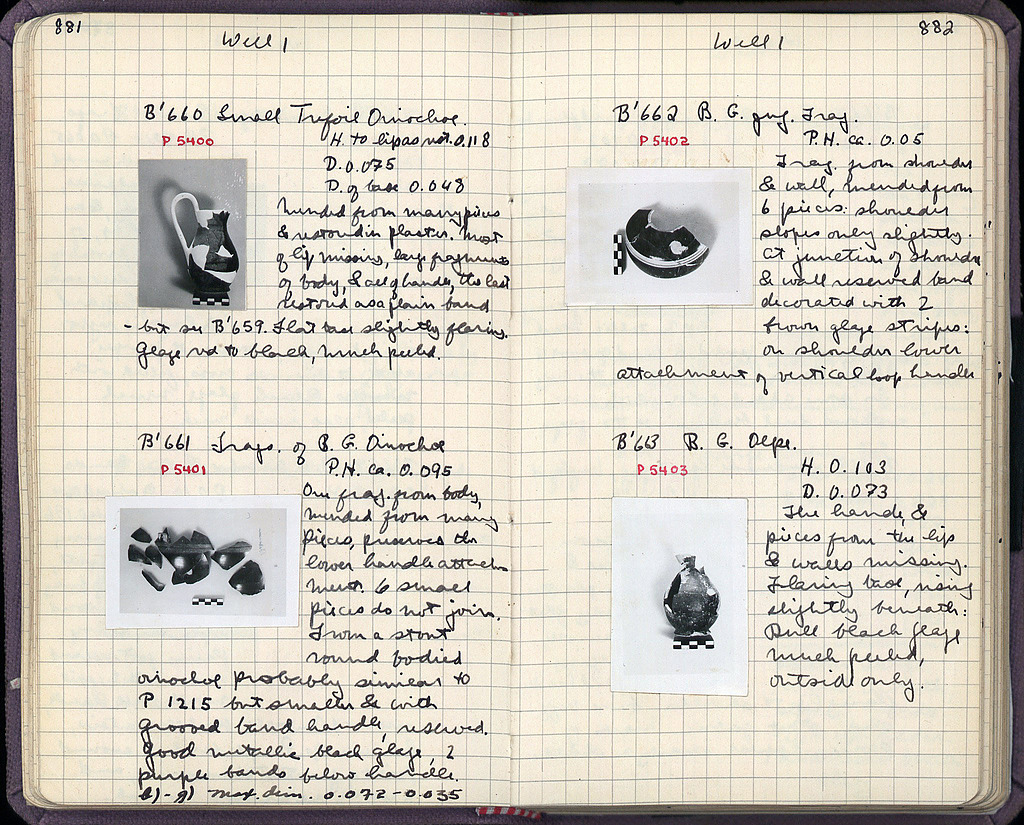 881
Well 1
B'660 Small Trefoil Oinochoe.
P 5400
H. to lip as rest. 0.118
D. 0.075
D. of base 0.048
Mended from many pieces
& restored in plaster. Most
of lip missing, large fragments
of body, & all of handle, the last
restored as a plain band
- but see B'659. Flat base slightly flaring.
Glaze red to black, much peeled.
B'661 Frags. of B. G. Oinochoe
P 5401
P.H. ca. 0.095
One frag. from body,
mended from many
pieces, preserves the
lower handle attach-
ment. 6 small
pieces do not join.
From a stout
round bodied
oinochoe probably similar to
P 1215 but smaller & with
grooved band handle, reserved.
Good metallic black glaze, 2
purple bands below handle.
b)-g) Max. dim. 0.072-0.035
882
Well 1
B'662 B. G. jug. Frag.
P 5402
P.H. ca. 0.05
Frag. from shoulder
& wall, mended from
6 pieces: shoulder
slopes only slightly.
At junction of shoulder
& wall reserved band
decorated with 2
brown glaze stripes:
on shoulder lower
attachment of vertical loop handle
B'663 B. G. Olpe.
P 5403
H. 0.103
D. 0.073
The handle, &
pieces from the lip
& walls missing.
Flaring base, rising
slightly beneath:
Dull black glaze
much peeled,
outside only.